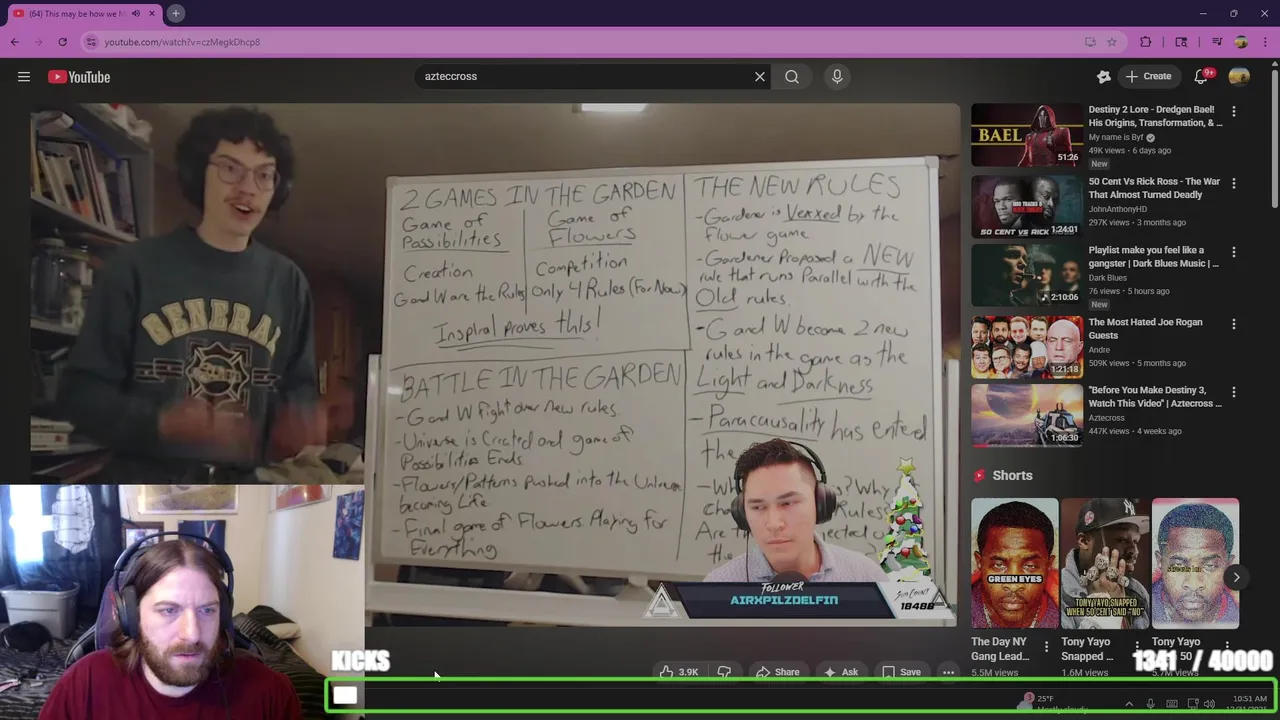 (64) This may be how we M
youtube.com/watch?v=czMegkDhcp8
YouTube
azteccross
Create
9+
GENERAL
2 GAMES IN THE GARDEN
Game of
Possibilities
Creation
G and W are the Rules
Game of
Flowers
Competition
Only 4 Rules (For Now)
Inspiral proves this!
BATTLE IN THE GARDEN
-G and W Fight over New rules.
-Universe is Created and game of
Possibilities Ends
-Flowers/Patterns pushed into the Universe
becoming Life
-Final game of Flowers. Playing for
Everything
THE NEW RULES
-Gardener is Vexxed by the
flower game
-Gardener Proposed a NEW
rule that runs Parallel with the
Old rules.
-G and W become 2 new
rules in the game as the
Light and Darkness
-Paracausality has entered
the
FOLLOWER
AIRXPILZDELFIN
SUB COUNT
18488
KICKS
1341 / 40000
3.9K
Share
Ask
Save
25°F
Mostly cloudy
10:51 AM
BAEL
51:26
Destiny 2 Lore - Dredgen Bael!
His Origins, Transformation, & ...
My name is Byf
49K views • 6 days ago
New
1:24:01
50 Cent Vs Rick Ross - The War
That Almost Turned Deadly
JohnAnthonyHD
297K views • 3 months ago
2:10:06
Playlist make you feel like a
gangster | Dark Blues Music | ...
Dark Blues
76 views • 5 hours ago
New
1:21:18
The Most Hated Joe Rogan
Guests
Andre
509K views • 5 months ago
1:06:30
"Before You Make Destiny 3,
Watch This Video" | Aztecross ...
Aztecross
447K views • 4 weeks ago
Shorts
GREEN EYES
TONY YAYO SNAPPED
WHEN 50 CENT SAID "NO"
The Day NY
Gang Lead...
5.5M views
Tony Yayo
Snapped ...
1.6M views
Tony Yayo
50
5.7M views